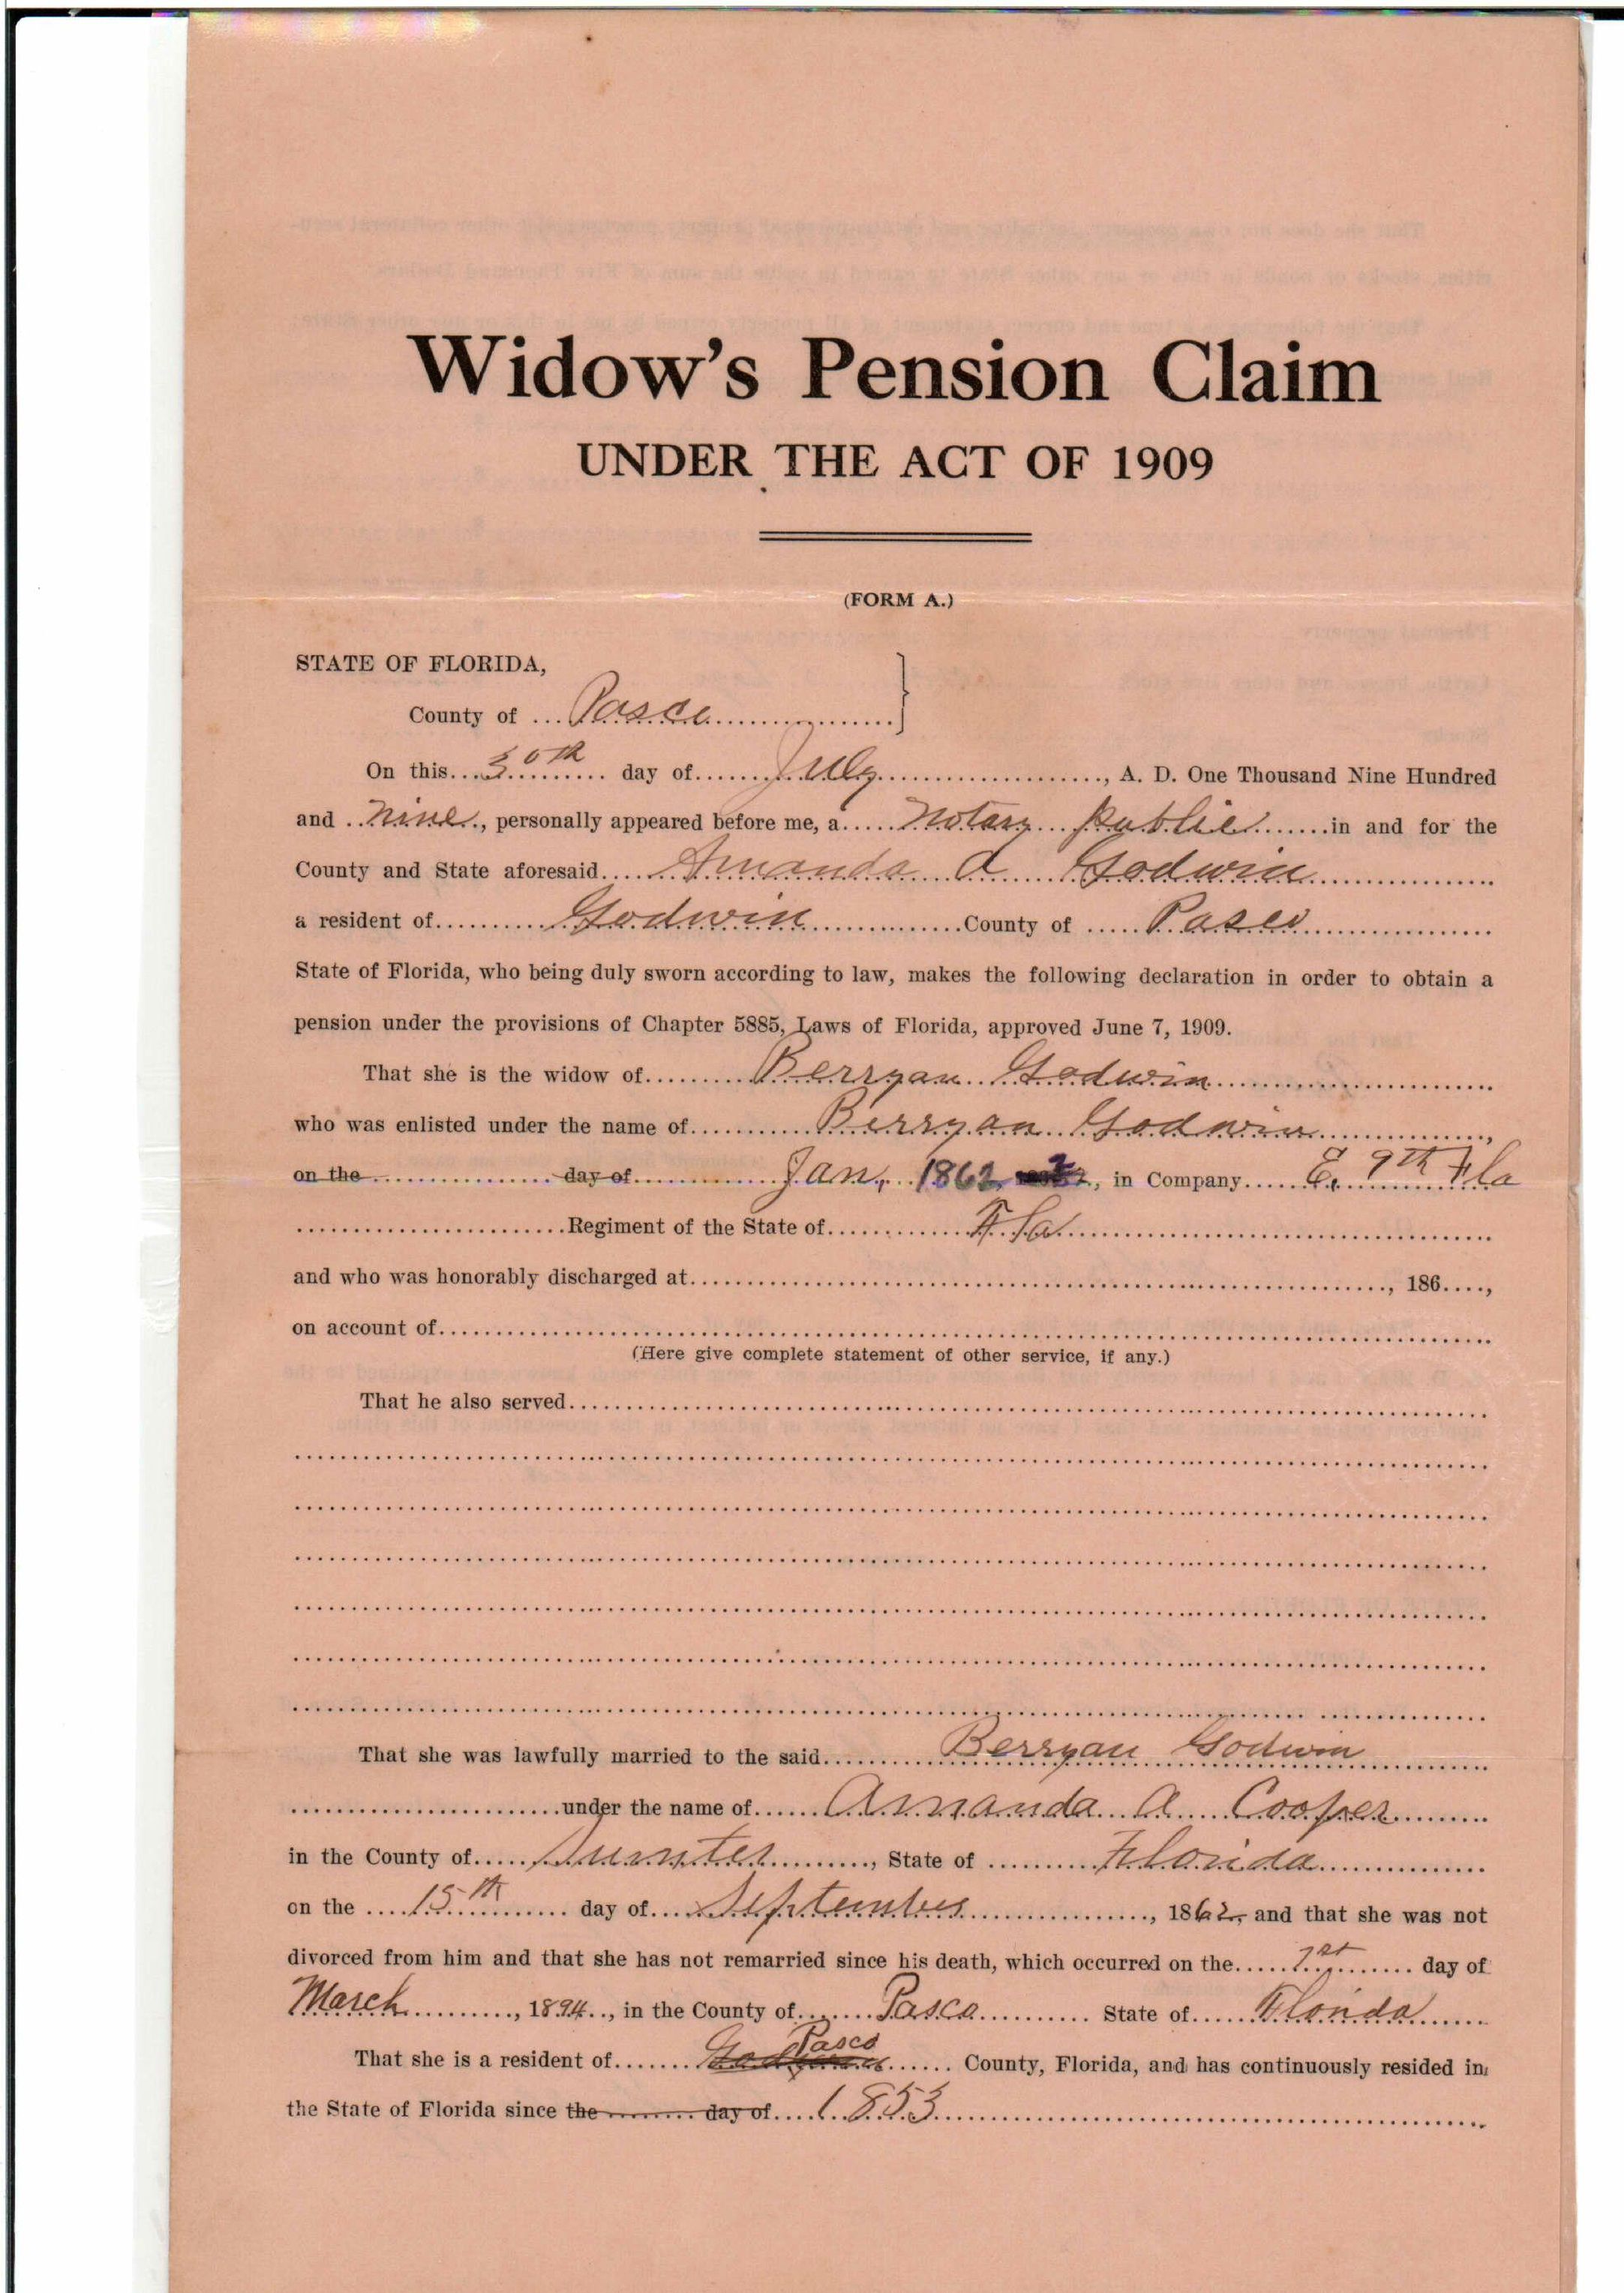 Widow's Pension Claim
UNDER THE ACT OF 1909
(FORM A.)
STATE OF FLORIDA,
County of Pasco
On this 30th day of July, A. D. One Thousand Nine Hundred
and nine, personally appeared before me, a Notary Public in and for the
County and State aforesaid Amanda A Godwin
a resident of Godwin County of Pasco
State of Florida, who being duly sworn according to law, makes the following declaration in order to obtain a
pension under the provisions of Chapter 5885, Laws of Florida, approved June 7, 1909.
That she is the widow of Berryan Godwin
who was enlisted under the name of Berryan Godwin,
on the day of Jan, 1862, in Company E, 9th Fla
Regiment of the State of Fla
and who was honorably discharged at, 186....,
on account of
(Here give complete statement of other service, if any.)
That he also served
That she was lawfully married to the said Berryan Godwin
under the name of Amanda A Cooper
in the County of Sumter, State of Florida
on the 15th day of September, 1862, and that she was not
divorced from him and that she has not remarried since his death, which occurred on the 1st day of
March, 1894, in the County of Pasco State of Florida
That she is a resident of Pasco County, Florida, and has continuously resided in
the State of Florida since the day of 1853